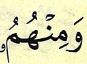 وَمِنْهُمُۥ